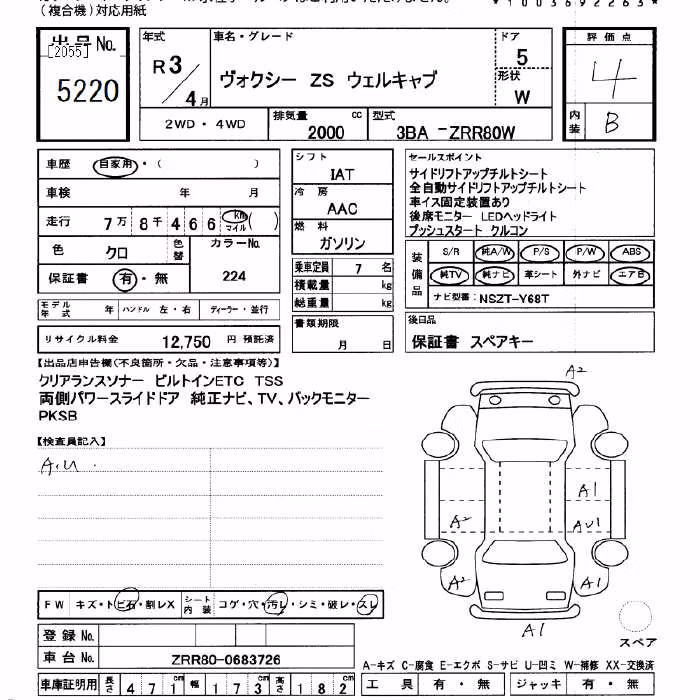 (複合機)対応用紙
*1003692263*
出品No.
[2055]
5220
年式
R3/4月
車名・グレード
ヴォクシー ZS ウェルキャブ
ドア
5
形状
W
評価点
4
内装
B
2WD・4WD
排気量 cc
2000
型式
3BA -ZRR80W
車歴 自家用・( )
車検 年 月
走行 7万8千466 km マイル ( )
色 クロ
色替
カラーNo.
224
保証書 有・無
モデル年式 年 ハンドル 左・右 ディーラー・並行
リサイクル料金 12,750 円 預託済
シフト
IAT
冷房
AAC
燃料
ガソリン
乗車定員 7 名
積載量 kg
総重量 kg
書類期限
月 日
セールスポイント
サイドリフトアップチルトシート
全自動サイドリフトアップチルトシート
車イス固定装置あり
後席モニター LEDヘッドライト
プッシュスタート クルコン
装備品
S/R 純A/W P/S P/W ABS
純TV 純ナビ 革シート 外ナビ エアB
ナビ型番: NSZT-Y68T
後日品
保証書 スペアキー
【出品店申告欄(不良箇所・欠品・注意事項等)】
クリアランスソナー ビルトインETC TSS
両側パワースライドドア 純正ナビ、TV、バックモニター
PKSB
【検査員記入】
A.U.
A2
A1
A2
AU1
A2
A1
A1
スペア
FW キズ・トビ石・割レX
シート内装 コゲ・穴・汚レ・シミ・破レ・スレ
登録No.
車台No. ZRR80-0683726
A-キズ C-腐食 E-エクボ S-サビ U-凹ミ W-補修 XX-交換済
車庫証明用 長さ 471cm 幅 173cm 高さ 182cm
工具 有・無 ジャッキ 有・無